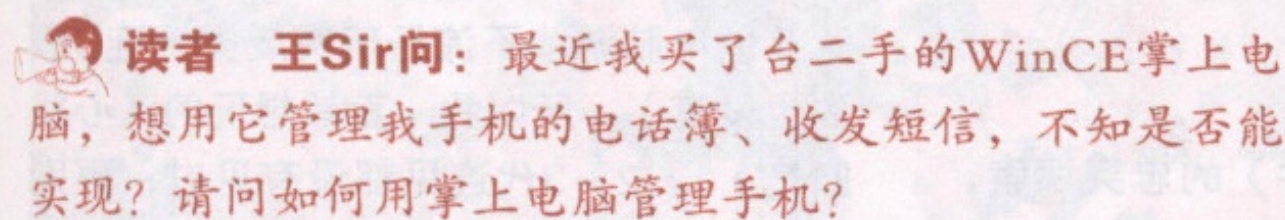 读者 王Sir问：最近我买了台二手的WinCE掌上电
脑，想用它管理我手机的电话簿、收发短信，不知是否能
实现？请问如何用掌上电脑管理手机？